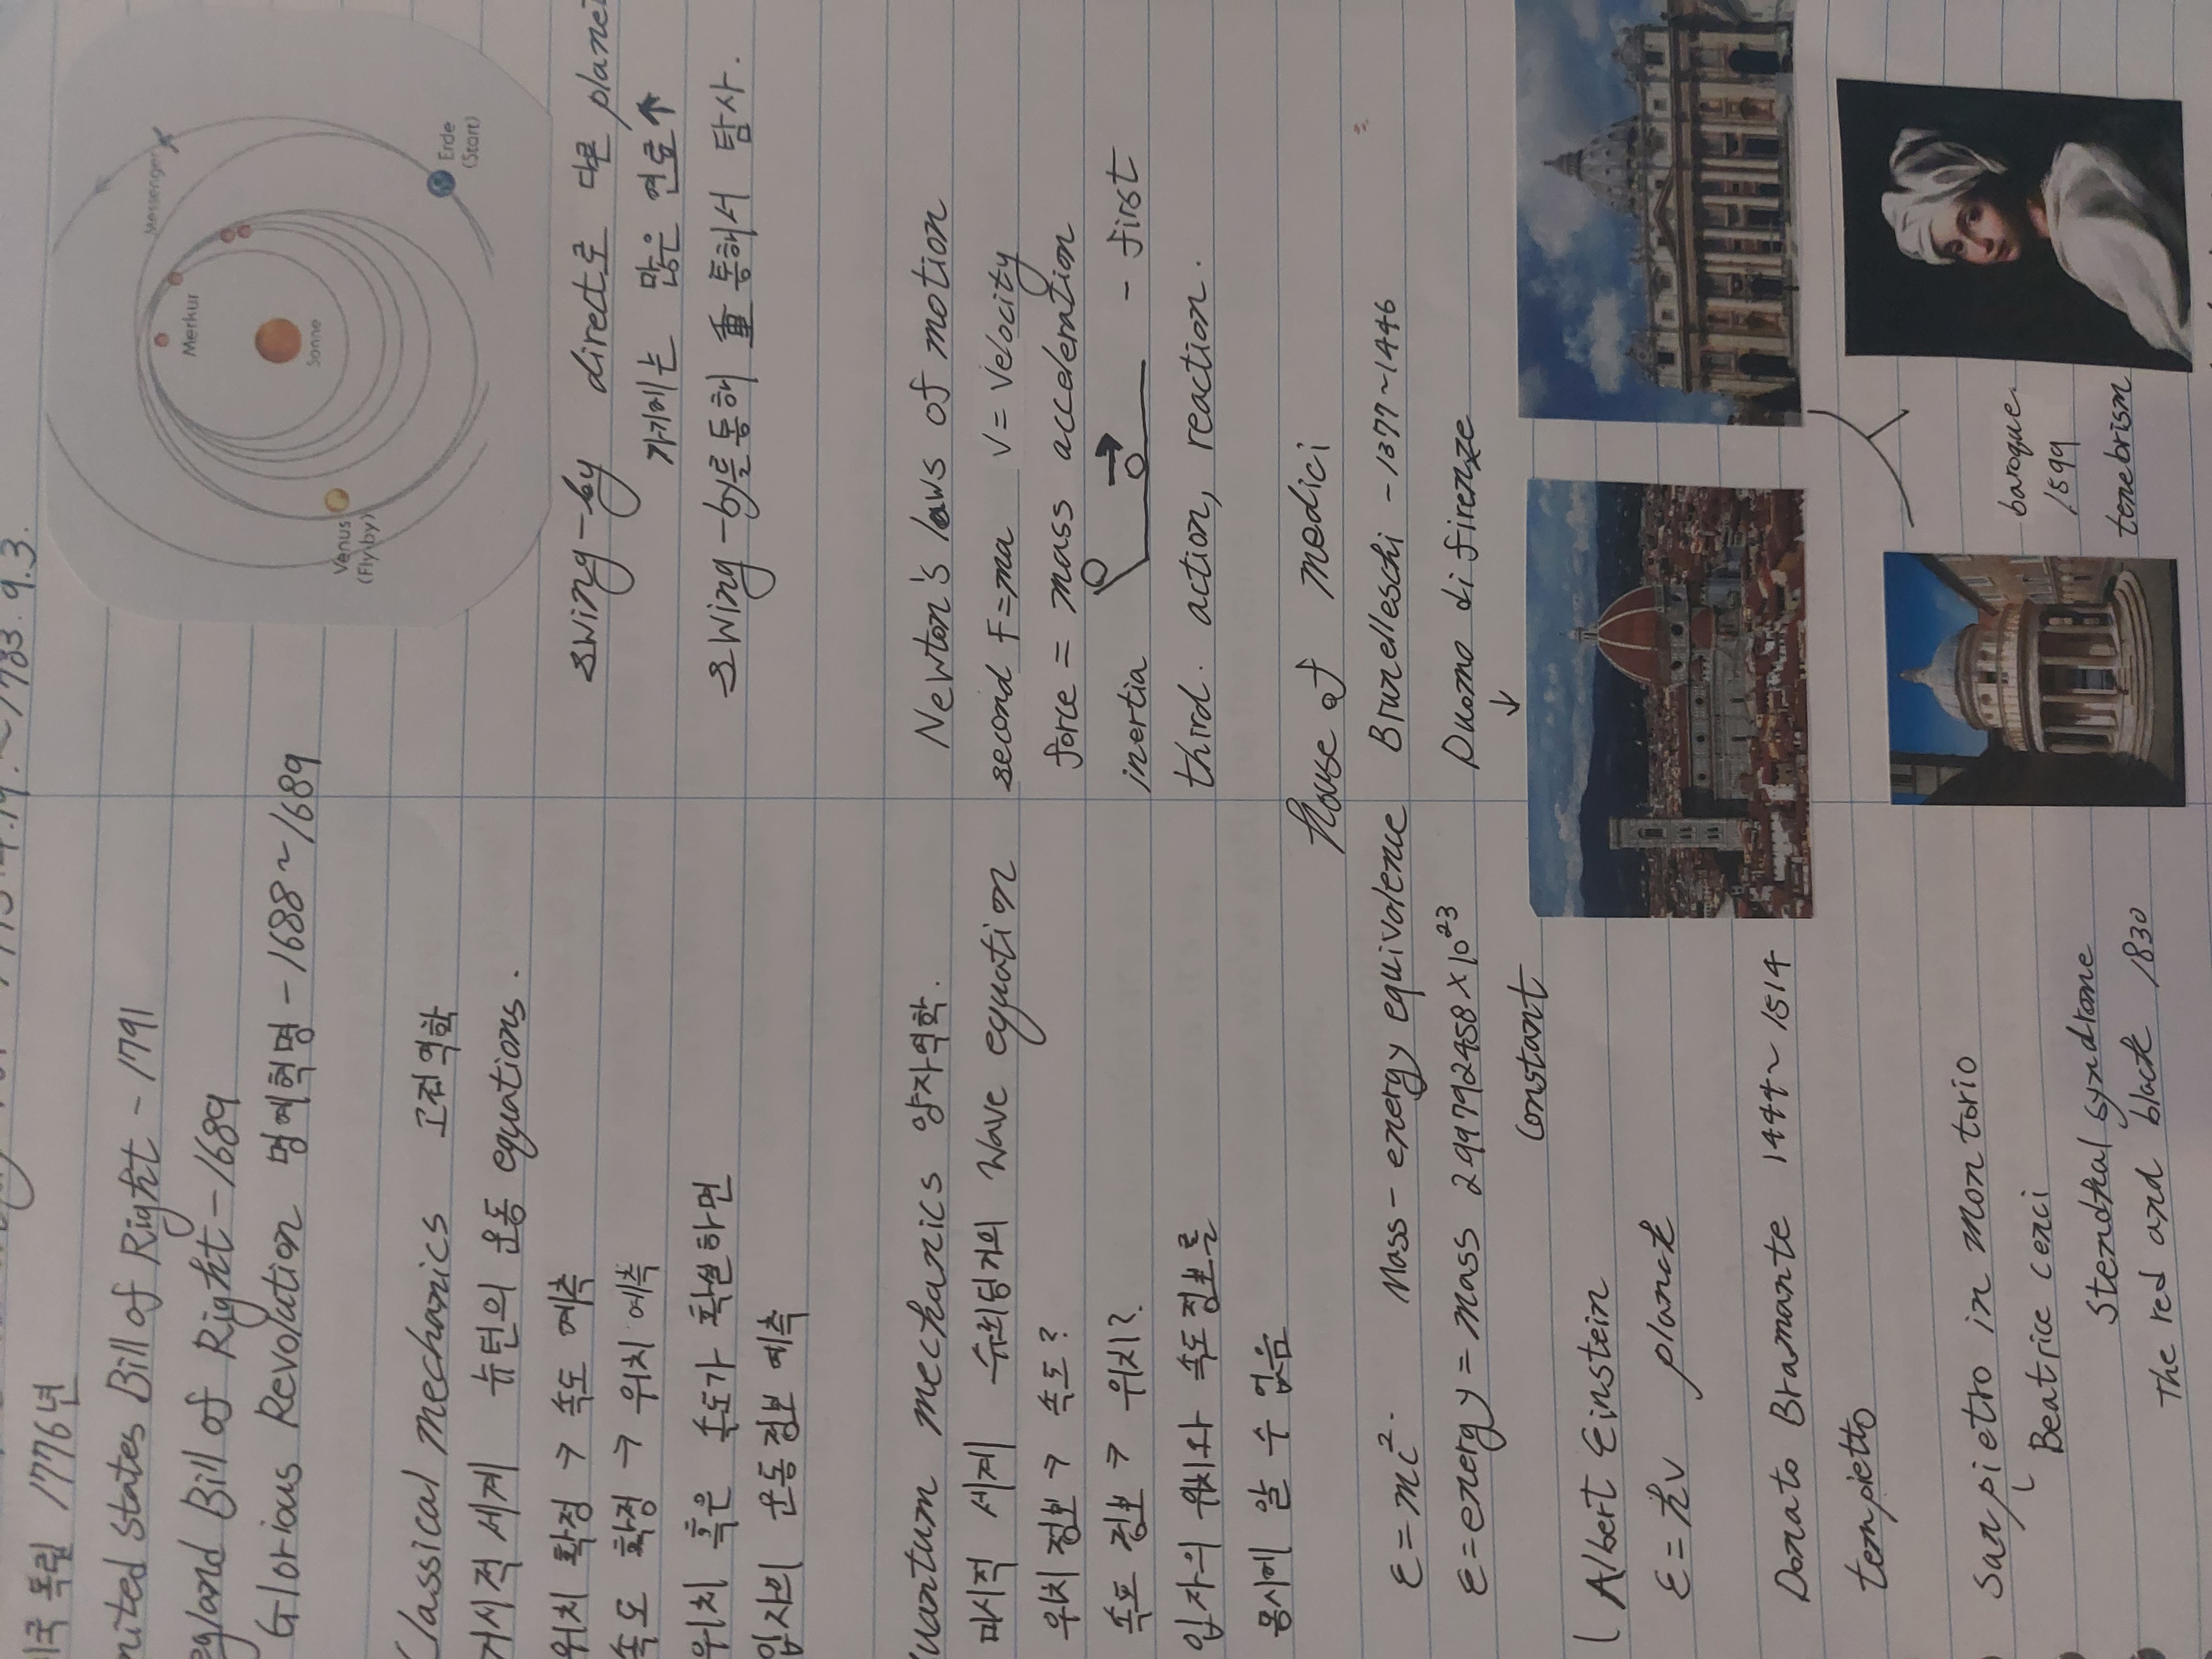 미국 독립 1776년
nited States Bill of Right - 1791
egland Bill of Right - 1689
Glorious Revolution 명예혁명 - 1688 ~ 1689
Classical mechanics 고전역학
거시적 세계 뉴턴의 운동 equations.
위치 확정 → 속도 예측
속도 확정 → 위치 예측
위치 혹은 속도가 확실하면
입자의 운동정보 예측
Quantum mechanics 양자역학.
미시적 세계 슈뢰딩거의 wave equation
위치 정보 → 속도?
속도 정보 → 위치?
입자의 위치와 속도 정보를
동시에 알 수 없음
E = mc². Mass - energy equivalence
E = energy = mass 299792458 × 10²³
constant
Albert Einstein
E = hv planck
Donato Bramante 1444 ~ 1514
tempietto
San pietro in montorio
Beatrice cenci
Stendhal syndrome
The red and black 1830
~1783. 9.3.
Messenger
Merkur
Sonne
Erde
(Start)
Venus
(Fly-by)
swing-by direct로 다른 planet
가기에는 많은 연료↑
swing-by를 통해 重 통해서 탐사.
Newton's laws of motion
second F=ma V = Velocity
force = mass acceleration
inertia - first
third. action, reaction.
house of medici
Brunelleschi - 1377 ~ 1446
Duomo di firenze
↓
baroque
1599
tenebrism